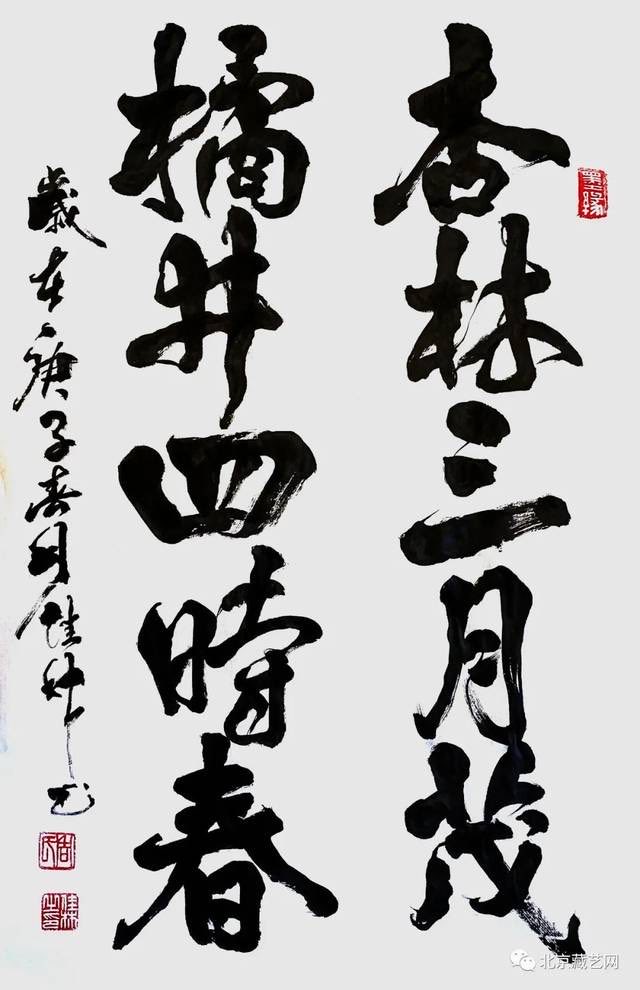 杏林三月茂
橘井四時春
歲在庚子春月佳林书
墨缘
北京藏艺网